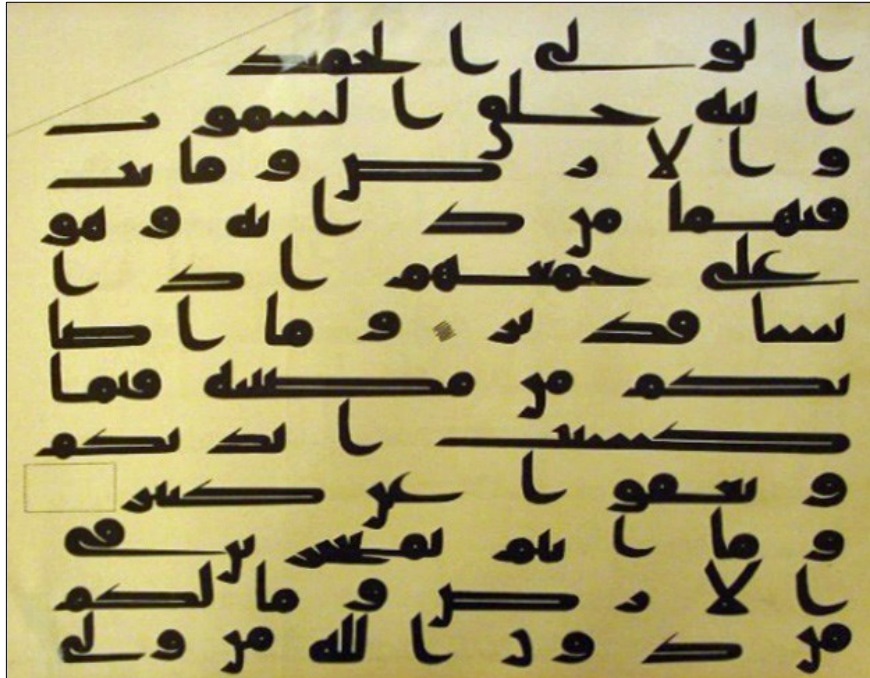 الولى الحميد
ايته خلق السموت
والارض وما بث
فيهما من دابة وهو
على جمعهم اذا
يشا قدير وما اصا
بكم من مصيبة فبما
كسبت ايديكم
ويعفوا عن كثير
وما انتم بمعجزين فى
الارض وما لكم
من دون الله من ولى